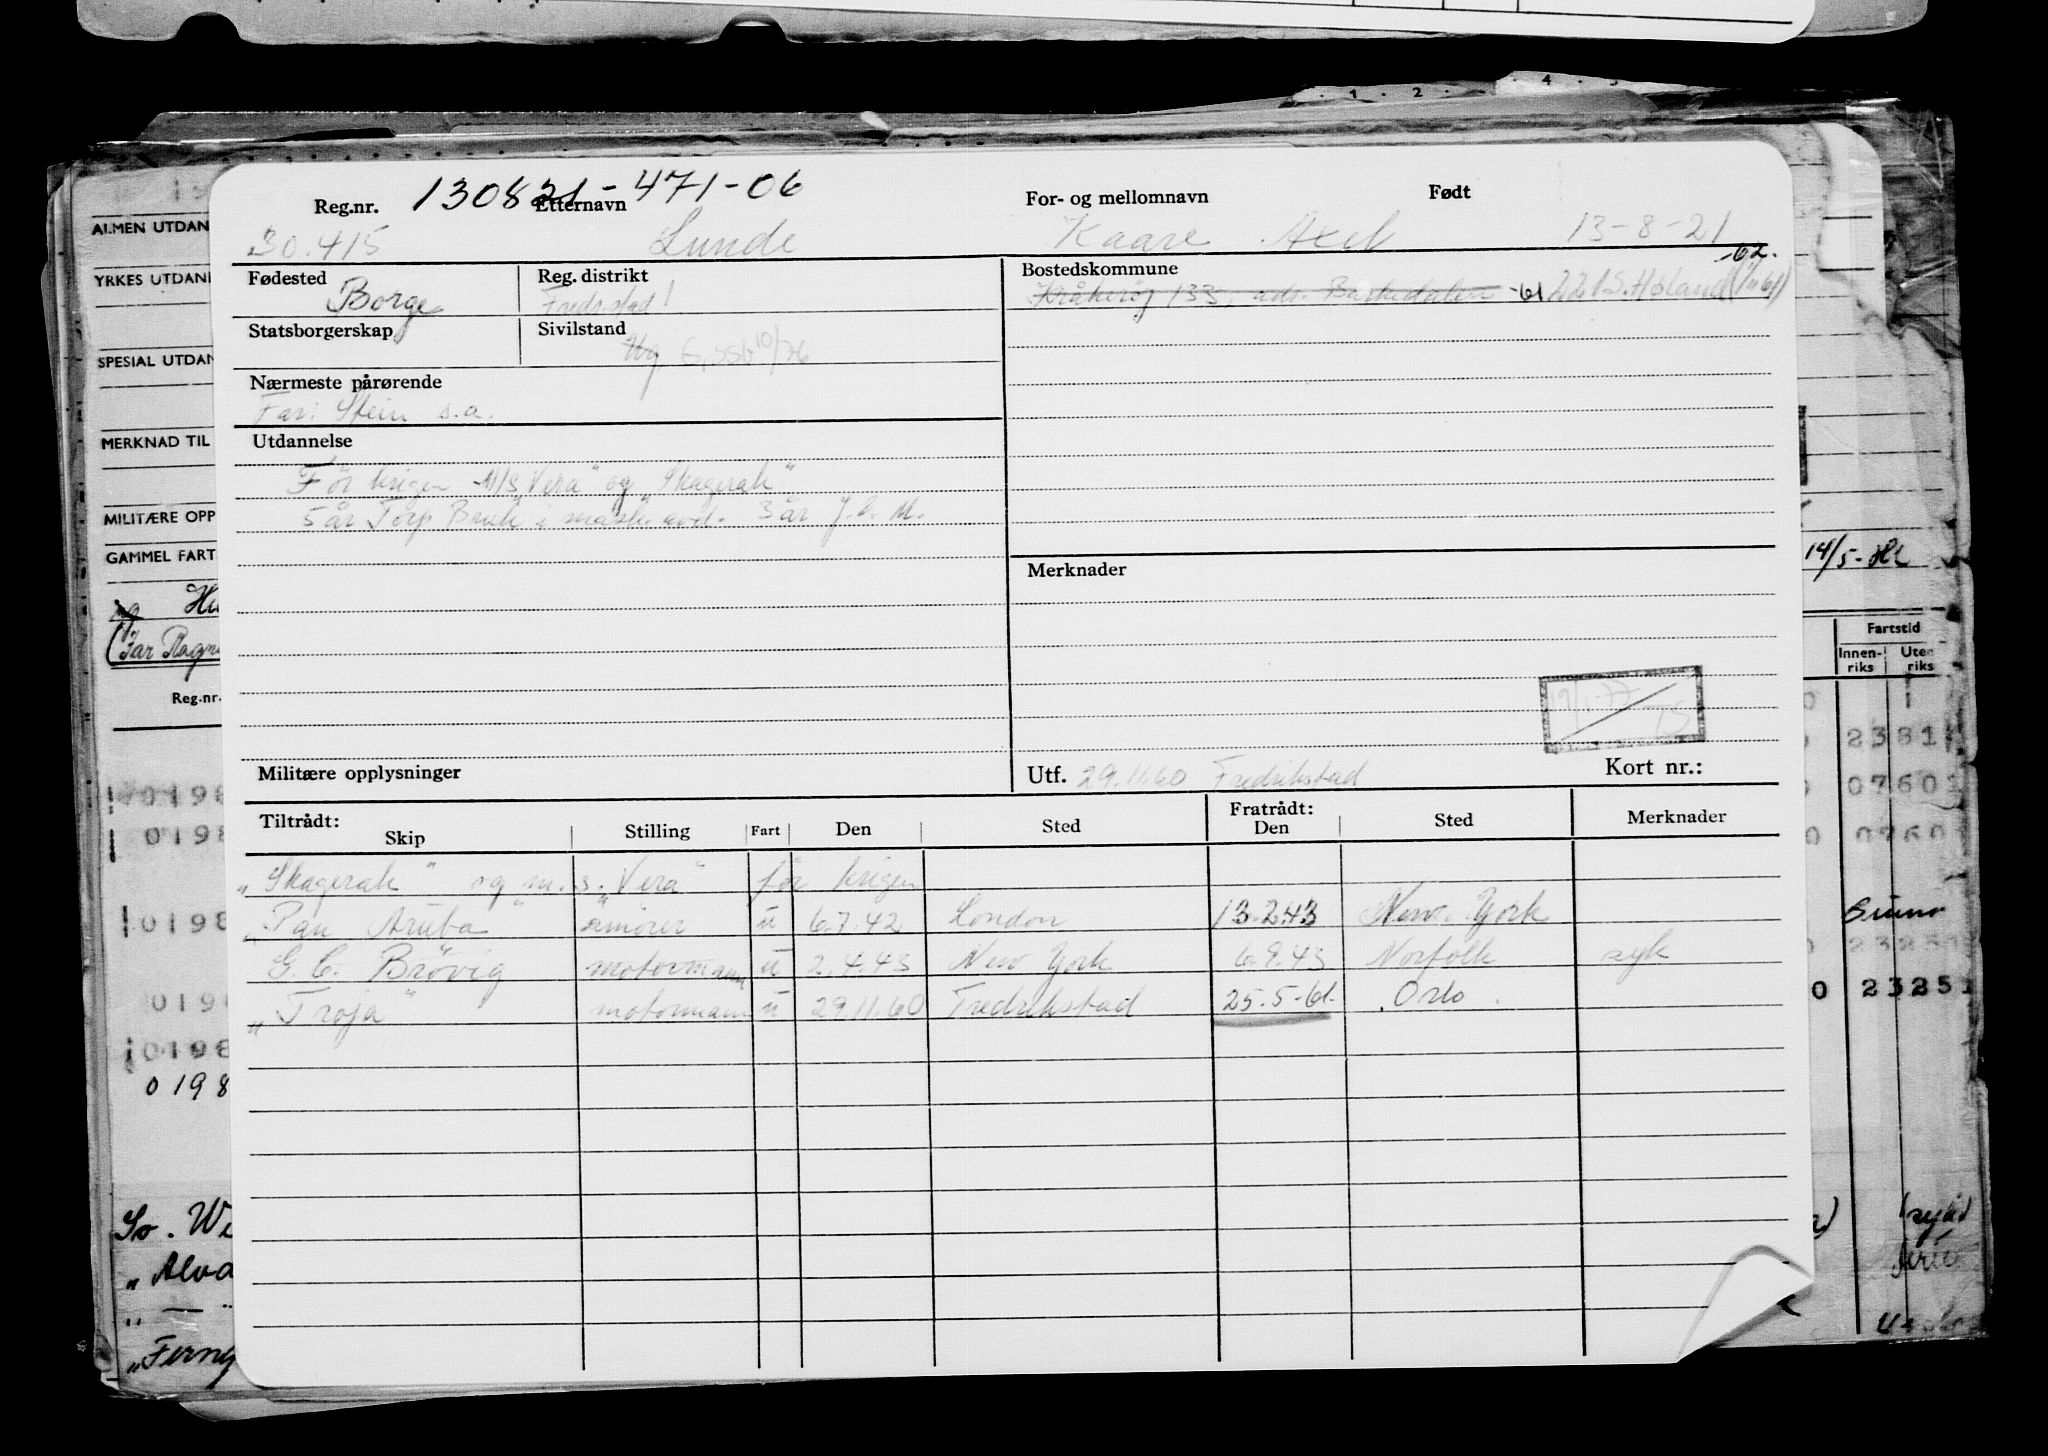 Reg.nr. 130821-471-06 Etternavn For- og mellomnavn Født
30.415 Lunde Kaare Axel 13-8-21
Fødested Borge
Reg. distrikt Fredrstad!
Statsborgerskap
Sivilstand Ug
Nærmeste pårørende
Far: Stein s.a.
Bostedskommune -62.
Kråkerøy 133, adr. -61 221 S. Høland
Utdannelse
Før krigen M/S "Vera" og "Skagerak"
5 år Torp Bruk i mask. avd. 3 år J. C. M.
Merknader
19/1-77 TS
Militære opplysninger
Utf. 29.11.60 Fredrikstad Kort nr.:
Tiltrådt: Skip Stilling Fart Den Sted Fratrådt: Den Sted Merknader
"Skagerak" og m.s. "Vera" før krigen
"Pan Aruba" smører u 6.7.42 London 13.2.43 New York
G. C. Brøvig motormann u 2.4.43 New York 6.9.43 Norfolk syk
"Troja" motormann u 29.11.60 Fredrikstad 25.5-61. Oslo.
ALMEN UTDAN
YRKES UTDAN
SPESIAL UTDAN
MERKNAD TIL
MILITÆRE OPP
GAMMEL FART
Reg.nr.
0198
0198
0198
0198
0198
0198
So. We
" Alva
"Ferny
14/5-
Fartstid
Innen-riks Uten riks
2381
07601
0760
23251
23251